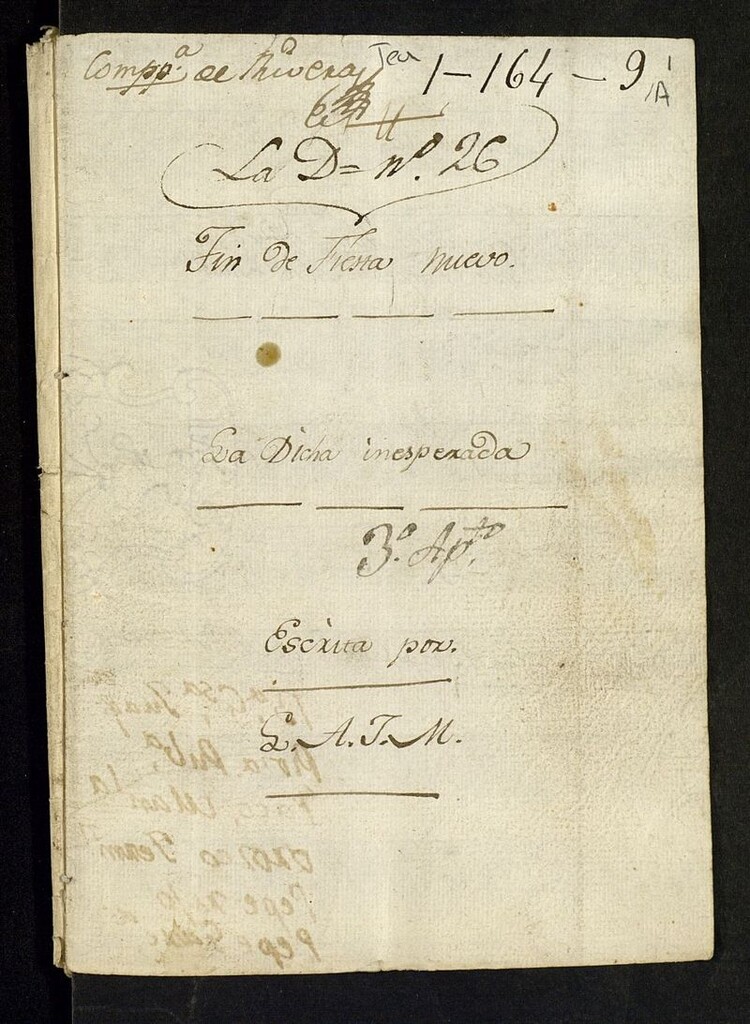 Compp.ª de Rivera Tea 1-164-9
1A
La D= nº. 26
Fin de Fiesta nuevo.
La Dicha inesperada
3º. Ap.to
Escrita por.
L. A. J. M.